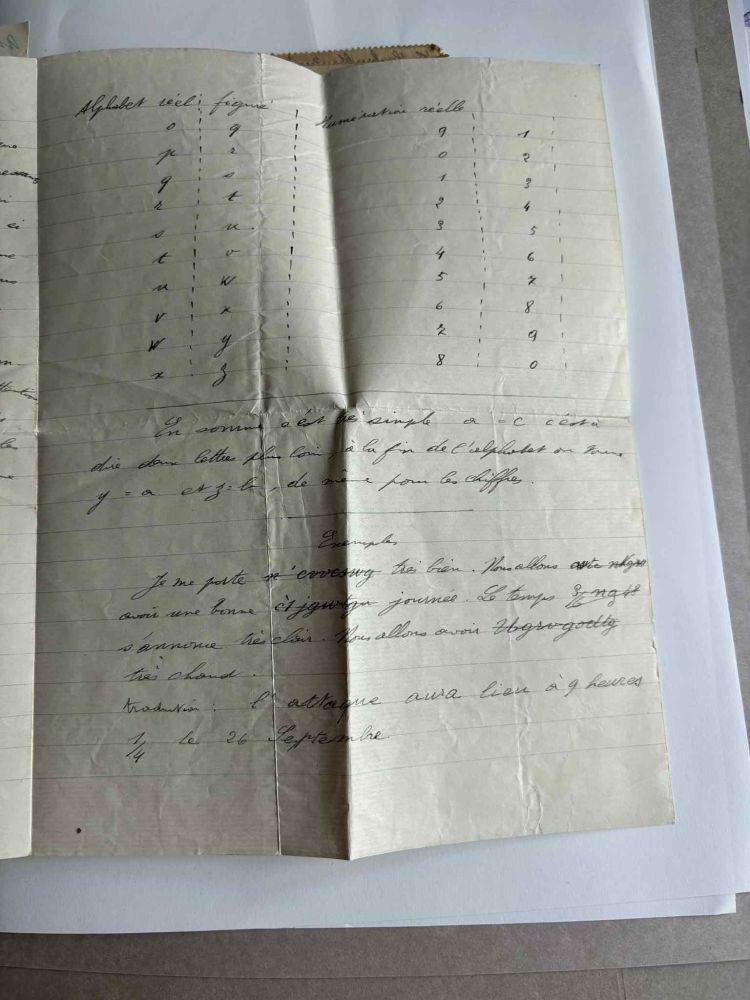 Alphabet réel figuré Numération réelle
o q 9 1
p r 0 2
q s 1 3
r t 2 4
s u 3 5
t v 4 6
u w 5 7
v x 6 8
w y 7 9
x z 8 0
En somme c'est très simple a = c c'est à
dire deux lettres plus loin, à la fin de l'alphabet on trouve
y = a et z = b, de même pour les chiffres.
Exemples
Je me porte n'cvvcswg très bien. Nous allons
avoir une bonne journée. Le temps 3/6 ng 48
s'annonce très clair. Nous allons avoir
très chaud.
traduction : l'attaque aura lieu à 9 heures
1/4 le 26 Septembre.